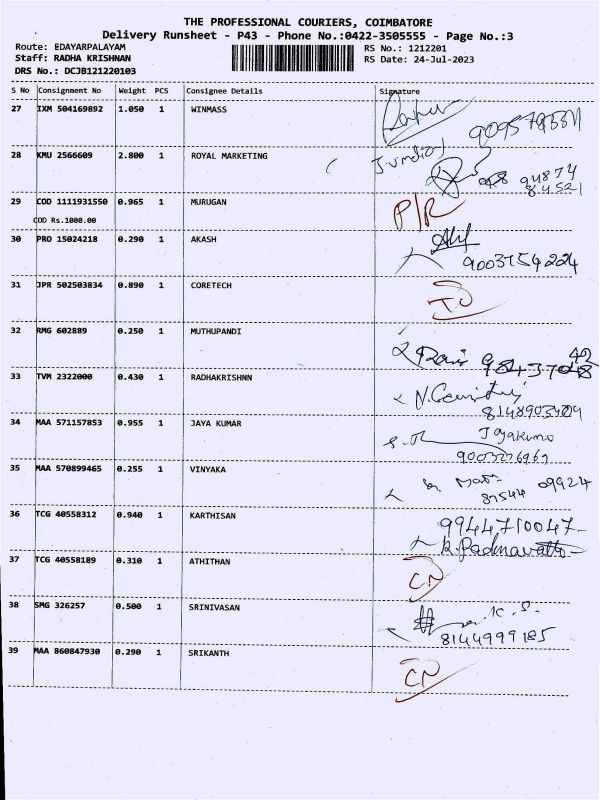 THE PROFESSIONAL COURIERS, COIMBATORE
Delivery Runsheet - P43 - Phone No.:0422-3505555 - Page No.:3
Route: EDAYARPALAYAM RS No.: 1212201
Staff: RADHA KRISHNAN RS Date: 24-Jul-2023
DRS No.: DCJB121220103
S No Consignment No Weight PCS Consignee Details Signature
27 IXM 504169892 1.050 1 WINMASS
28 KMU 2566609 2.800 1 ROYAL MARKETING
94874
84521
29 COD 1111931550 0.965 1 MURUGAN P/R
COD Rs.1000.00
30 PRO 15024218 0.290 1 AKASH
9003154224
31 JPR 502503834 0.890 1 CORETECH
32 RMG 602889 0.250 1 MUTHUPANDI
33 TVM 2322000 0.430 1 RADHAKRISHNN
8148903409
34 MAA 571157853 0.955 1 JAYA KUMAR
35 MAA 570899465 0.255 1 VINYAKA
09924
36 TCG 40558312 0.940 1 KARTHISAN 9944710047
37 TCG 40558189 0.310 1 ATHITHAN CN
38 SMG 326257 0.500 1 SRINIVASAN K.S.
8144999185
39 MAA 860847930 0.290 1 SRIKANTH CN